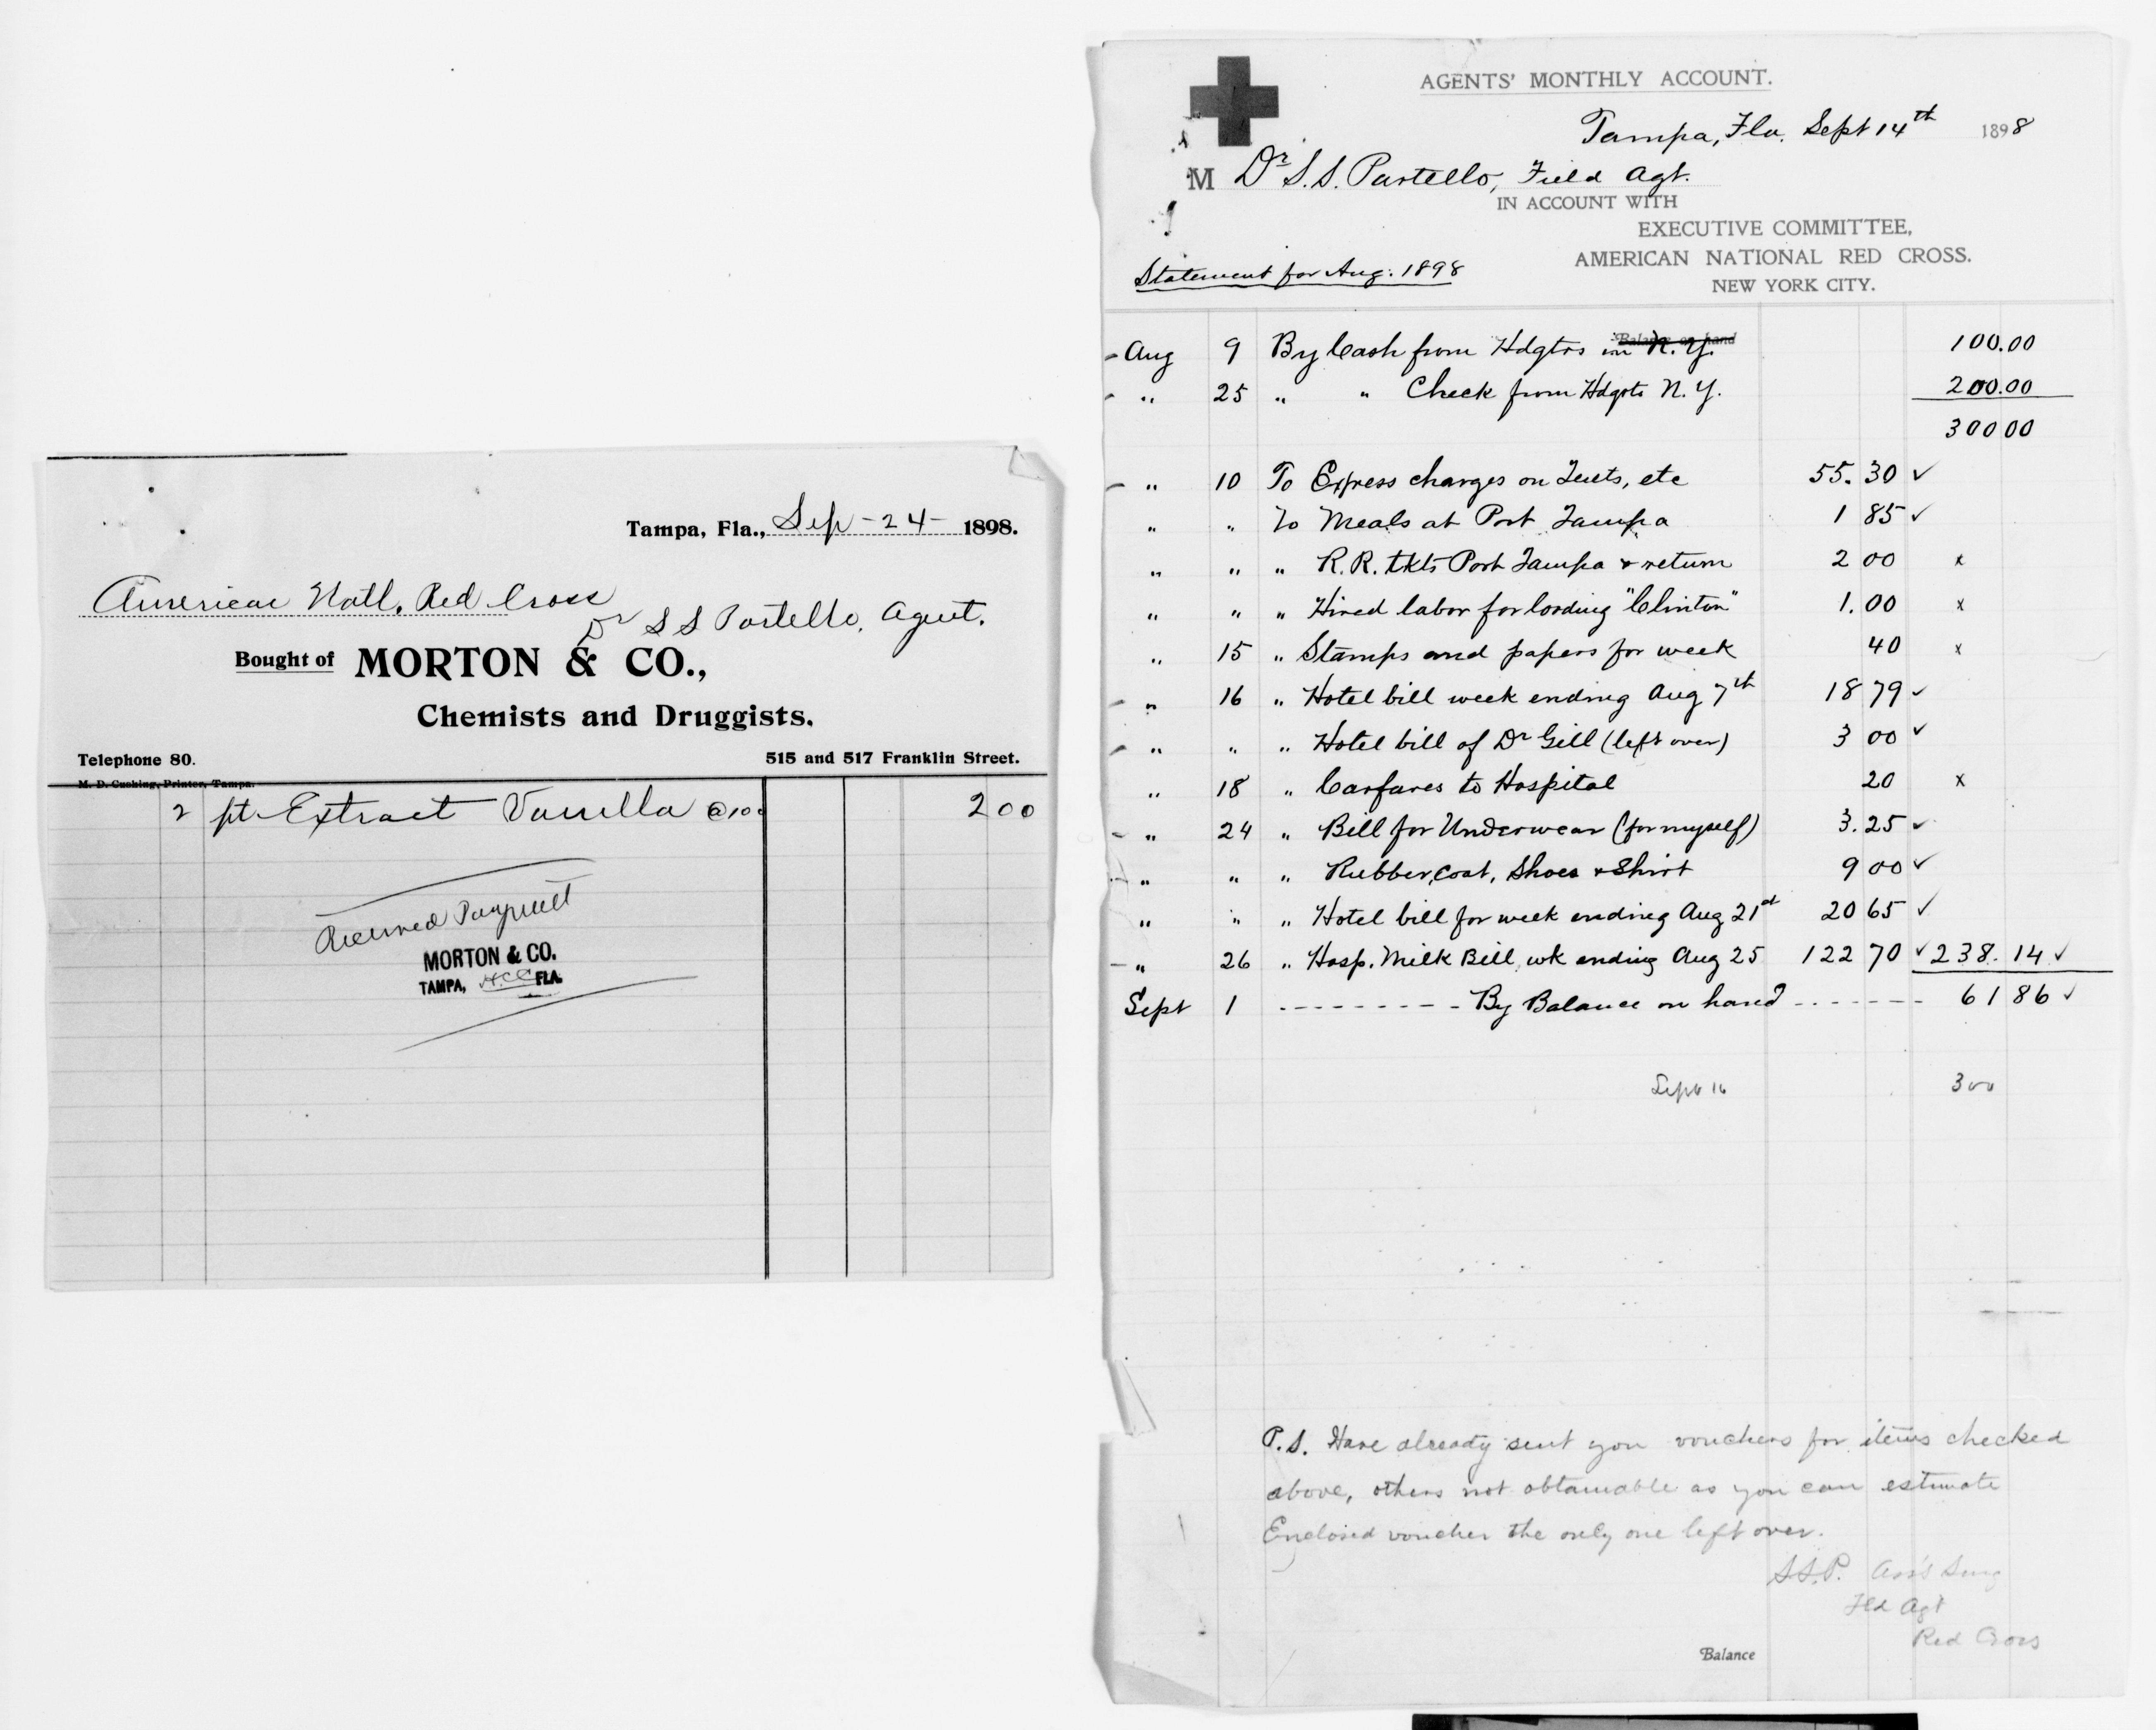 Tampa, Fla., Sep - 24 - 1898.
American Natl. Red Cross
Dr S S Partello, Agent.
Bought of MORTON & CO.,
Chemists and Druggists.
Telephone 80. 515 and 517 Franklin Street.
M. D. Cushing, Printer, Tampa.
2 pt Extract Vanilla @ 100 2 00
Received Payment
MORTON & CO.
TAMPA, FLA.
AGENTS' MONTHLY ACCOUNT.
Tampa, Fla. Sept 14th 1898
M Dr S.S. Partello, Field Agt.
IN ACCOUNT WITH
EXECUTIVE COMMITTEE,
AMERICAN NATIONAL RED CROSS.
NEW YORK CITY.
Statement for Aug: 1898
Balance on hand
Aug 9 By Cash from Hdqtrs in N.Y. 100.00
" 25 " " Check from Hdqrts N.Y. 200.00
300 00
" 10 To Express charges on Tents, etc 55.30 ✓
" " To Meals at Port Tampa 1 85 ✓
" " " R.R. tkts Port Tampa & return 2 00 x
" " " Hired labor for loading "Clinton" 1.00 x
" 15 " Stamps and papers for week 40 x
" 16 " Hotel bill week ending Aug 7th 18 79 ✓
" " " Hotel bill of Dr Gill (left over) 3 00 ✓
" 18 " Carfares to Hospital 20 x
" 24 " Bill for Underwear (for myself) 3.25 ✓
" " " Rubber, coat, Shoes & Shirt 9 00 ✓
" " " Hotel bill for week ending Aug 21st 20 65 ✓
" 26 " Hosp. Milk Bill, wk ending Aug 25 122 70 ✓ 238.14 ✓
Sept 1 - - - - - - - - - By Balance on hand - - - - - - - 61 86 ✓
Sept 16 300
P.S. Have already sent you vouchers for items checked
above, others not obtainable as you can estimate
Enclosed voucher the only one left over.
S.S.P. Ass't Surg
Fld Agt
Red Cross
Balance